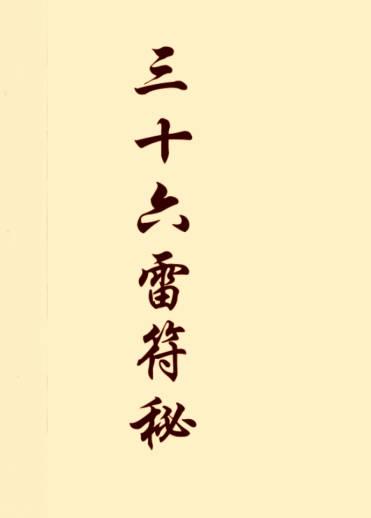 三十六雷符秘